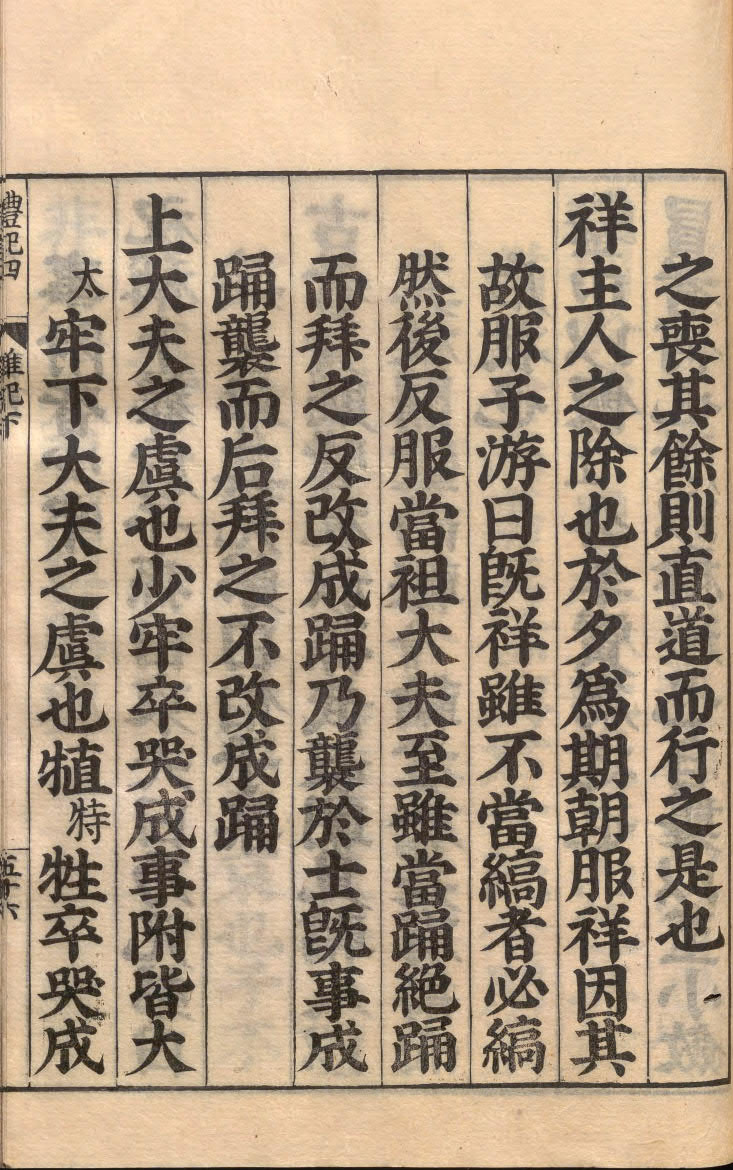 之喪其餘則直道而行之是也
祥主人之除也於夕爲期朝服祥因其
故服子游曰旣祥雖不當縞者必縞
然後反服當袒大夫至雖當踊絶踊
而拜之反改成踊乃襲於士旣事成
踊襲而后拜之不改成踊
上大夫之虞也少牢卒哭成事附皆大
太牢下大夫之虞也犆特牲卒哭成
禮記四
雜記下
五十六